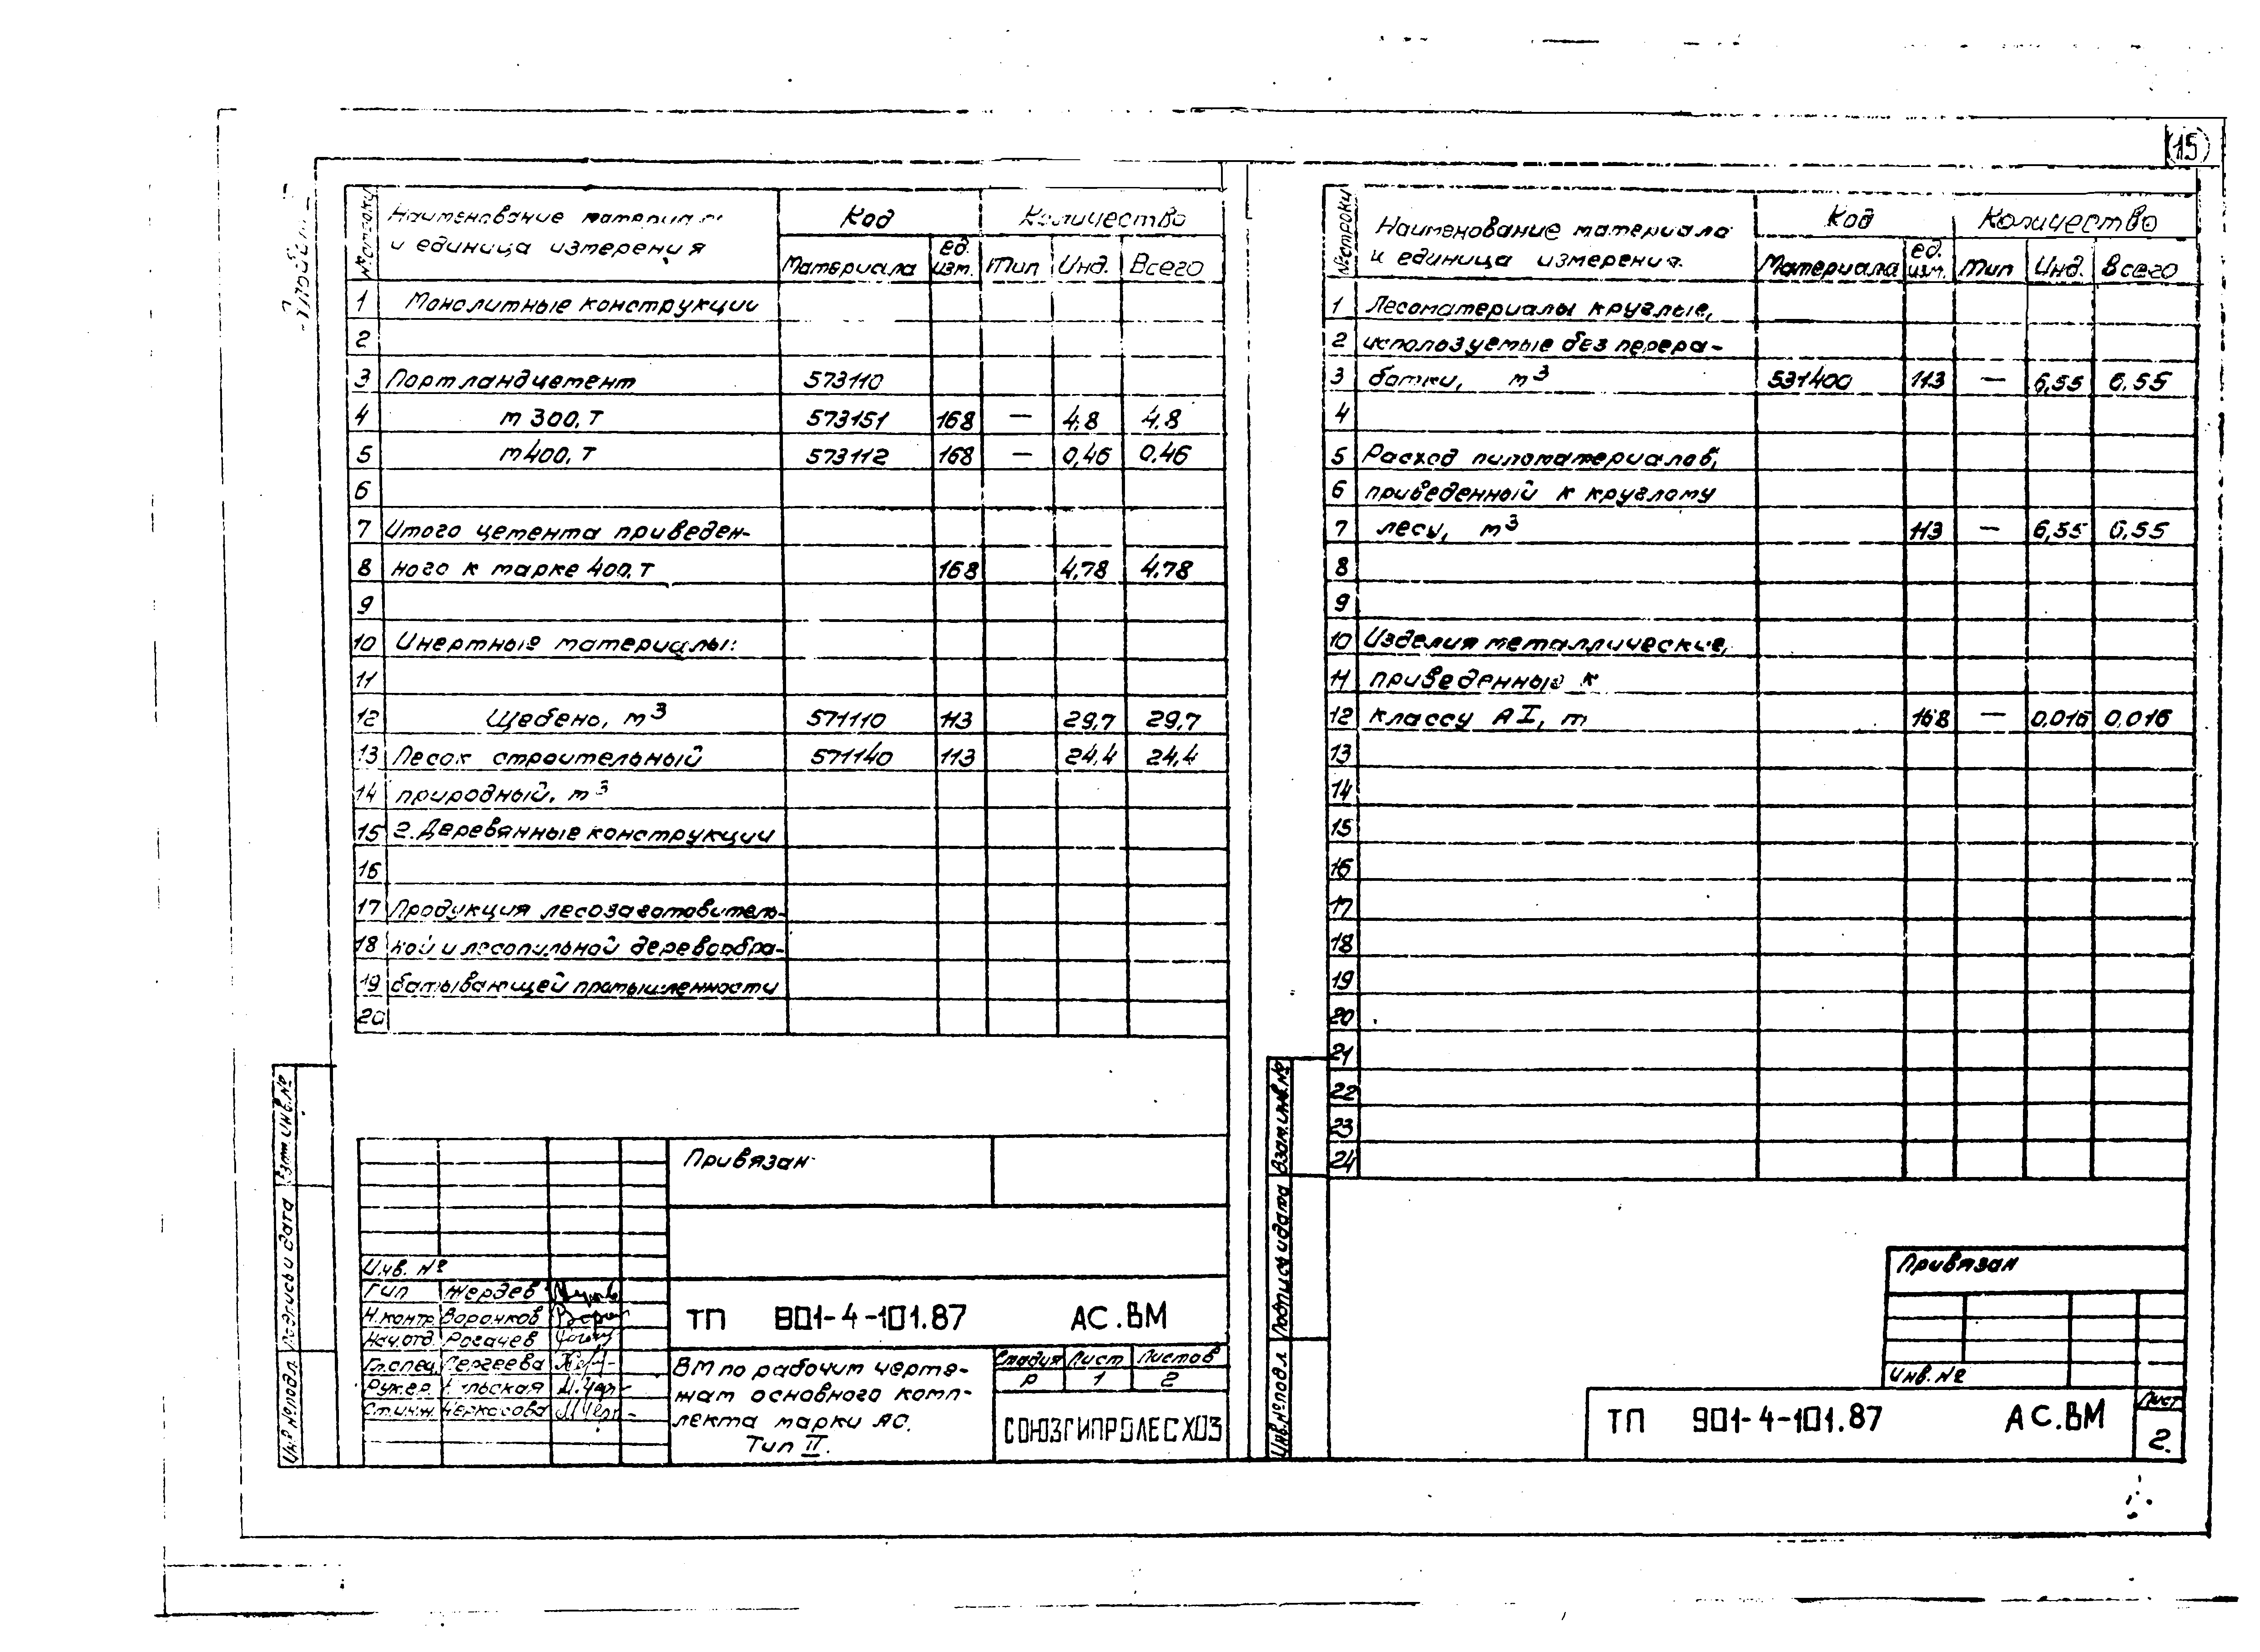 15
№ строки
Наименование материала
и единица измерения
Код
Количество
Материала
ед. изм.
Тип
Инд.
Всего
1 Монолитные конструкции
2
3 Портландцемент 573110
4 м 300, т 573151 168 — 4.8 4.8
5 м 400, т 573112 168 — 0,46 0.46
6
7 Итого цемента приведен-
8 ного к марке 400, т 168 4.78 4.78
9
10 Инертные материалы:
11
12 Щебень, м³ 571110 113 29,7 29,7
13 Песок строительный 571140 113 24,4 24,4
14 природный, м³
15 2. Деревянные конструкции
16
17 Продукция лесозаготовитель-
18 ной и лесопильной деревообра-
19 батывающей промышленности
20
Взам инв. №
Подпись и дата
Инв. № подл.
Привязан
Инв. №
Гип Жердев
Н.контр Воронков
Нач.отд Рогачев
Гл.спец. Сергеева
Рук.гр.
Ст.инж. Черкасова
ТП 901-4-101.87 АС.ВМ
ВМ по рабочим черте-
жам основного комп-
лекта марки АС.
Тип II.
Стадия Лист Листов
Р 1 2
СОЮЗГИПРОЛЕСХОЗ
№ строки
Наименование материала
и единица измерения
Код
Количество
Материала
ед. изм.
Тип
Инд.
Всего
1 Лесоматериалы круглые,
2 используемые без перера-
3 ботки, м³ 531400 113 — 6,55 6.55
4
5 Расход пиломатериалов,
6 приведенный к круглому
7 лесу, м³ 113 — 6,55 6,55
8
9
10 Изделия металлические,
11 приведенные к
12 классу АI, т 168 — 0,016 0,016
13
14
15
16
17
18
19
20
21
22
23
24
Взам. инв. №
Подпись и дата
Инв. № подл.
Привязан
Инв. №
ТП 901-4-101.87 АС.ВМ
Лист
2.